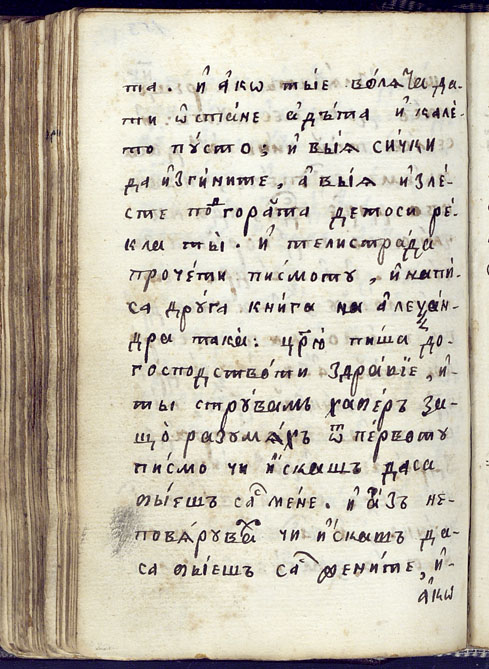 та. и҆ а҆кѡ тые вола́та да-
ти ѡ҆ста́не а҆дъта и҆ кале-
то пꙋ́сто; и҆ вы́ѧ си́чки
да и҆зги́ните, а҆ вы́ѧ и҆зле́-
сте пⷪ҇ гора́та детоси ре́-
кла ты̀. и҆ телистра́да
проче́ти писмотꙋ, и҆ напи́-
са дрꙋга кни́га на а҆леѯа́н-
дра така̀: цр҃ю пи́ша до-
господство́ти здра́вїе, и҆-
ты стрꙋ́вамъ хапе́ръ за-
що̀ разꙋмѧ́хъ ѿ пе́рвотꙋ
пи́смо чи и҆́скашъ даса
бы́ешъ са мене. и҆ а҆́зъ не-
повѧ́рꙋвⷨа чи и҆́скашъ да-
са бы́ешъ са жени́те, и҆-
а҆́кѡ